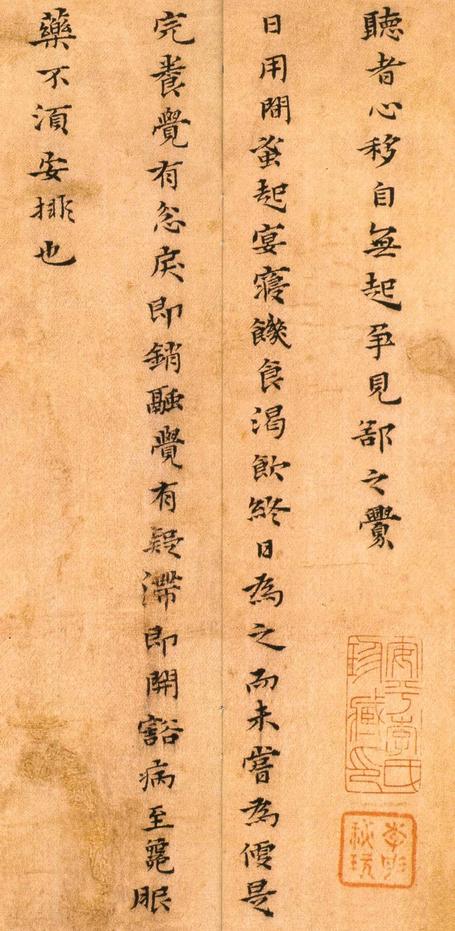 聽者心移自無起爭見郤之釁
日用間蚤起宴寢饑食渴飲終日為之而未嘗為便是
完養覺有忿戾即銷融覺有疑滯即開豁病至毚服
藥不須安排也
安平李氏珍藏印